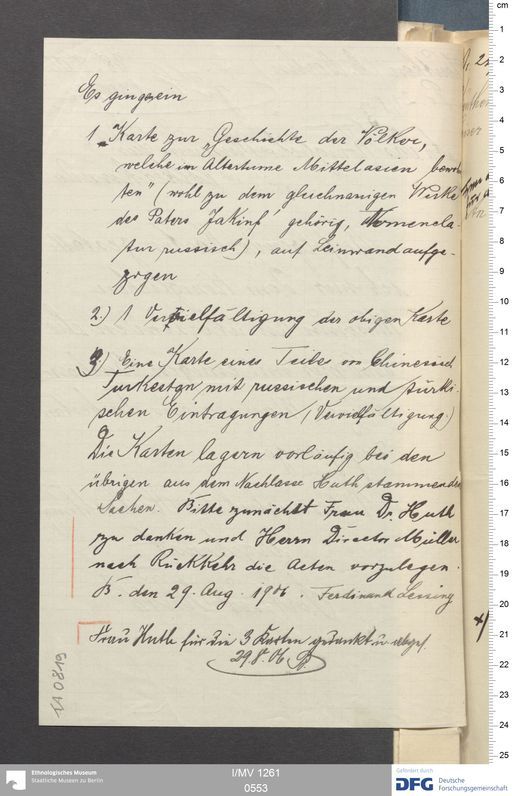 Es gingen ein
1. Karte zur „Geschichte der Völker,
welche im Altertume Mittelasien bewohn-
ten" (wohl zu dem gleichnamigen Werke
des Paters Jakinf gehörig, Nomencla-
tur russisch), auf Leinwand aufge-
zogen
2.) 1 Vervielfältigung der obigen Karte
3.) Eine Karte eines Teiles von Chinesisch
Turkestan mit russischen und türki-
schen Eintragungen (Vervielfältigung.)
Die Karten lagern vorläufig bei den
übrigen aus dem Nachlasse Huth stammenden
Sachen. Bitte zunächst Frau Dr. Huth
zu danken und Herrn Director Müller
nach Rückkehr die Acten vorzulegen.
B. den 29. Aug. 1906. Ferdinand Lessing
Frau Huth für die 3 Karten gedankt u. abges.
29.8.06
11 0819
cm
1
2
3
4
5
6
7
8
9
10
11
12
13
14
15
16
17
18
19
20
21
22
23
24
25
Ethnologisches Museum
Staatliche Museen zu Berlin
I/MV 1261
0553
Gefördert durch
DFG Deutsche
Forschungsgemeinschaft